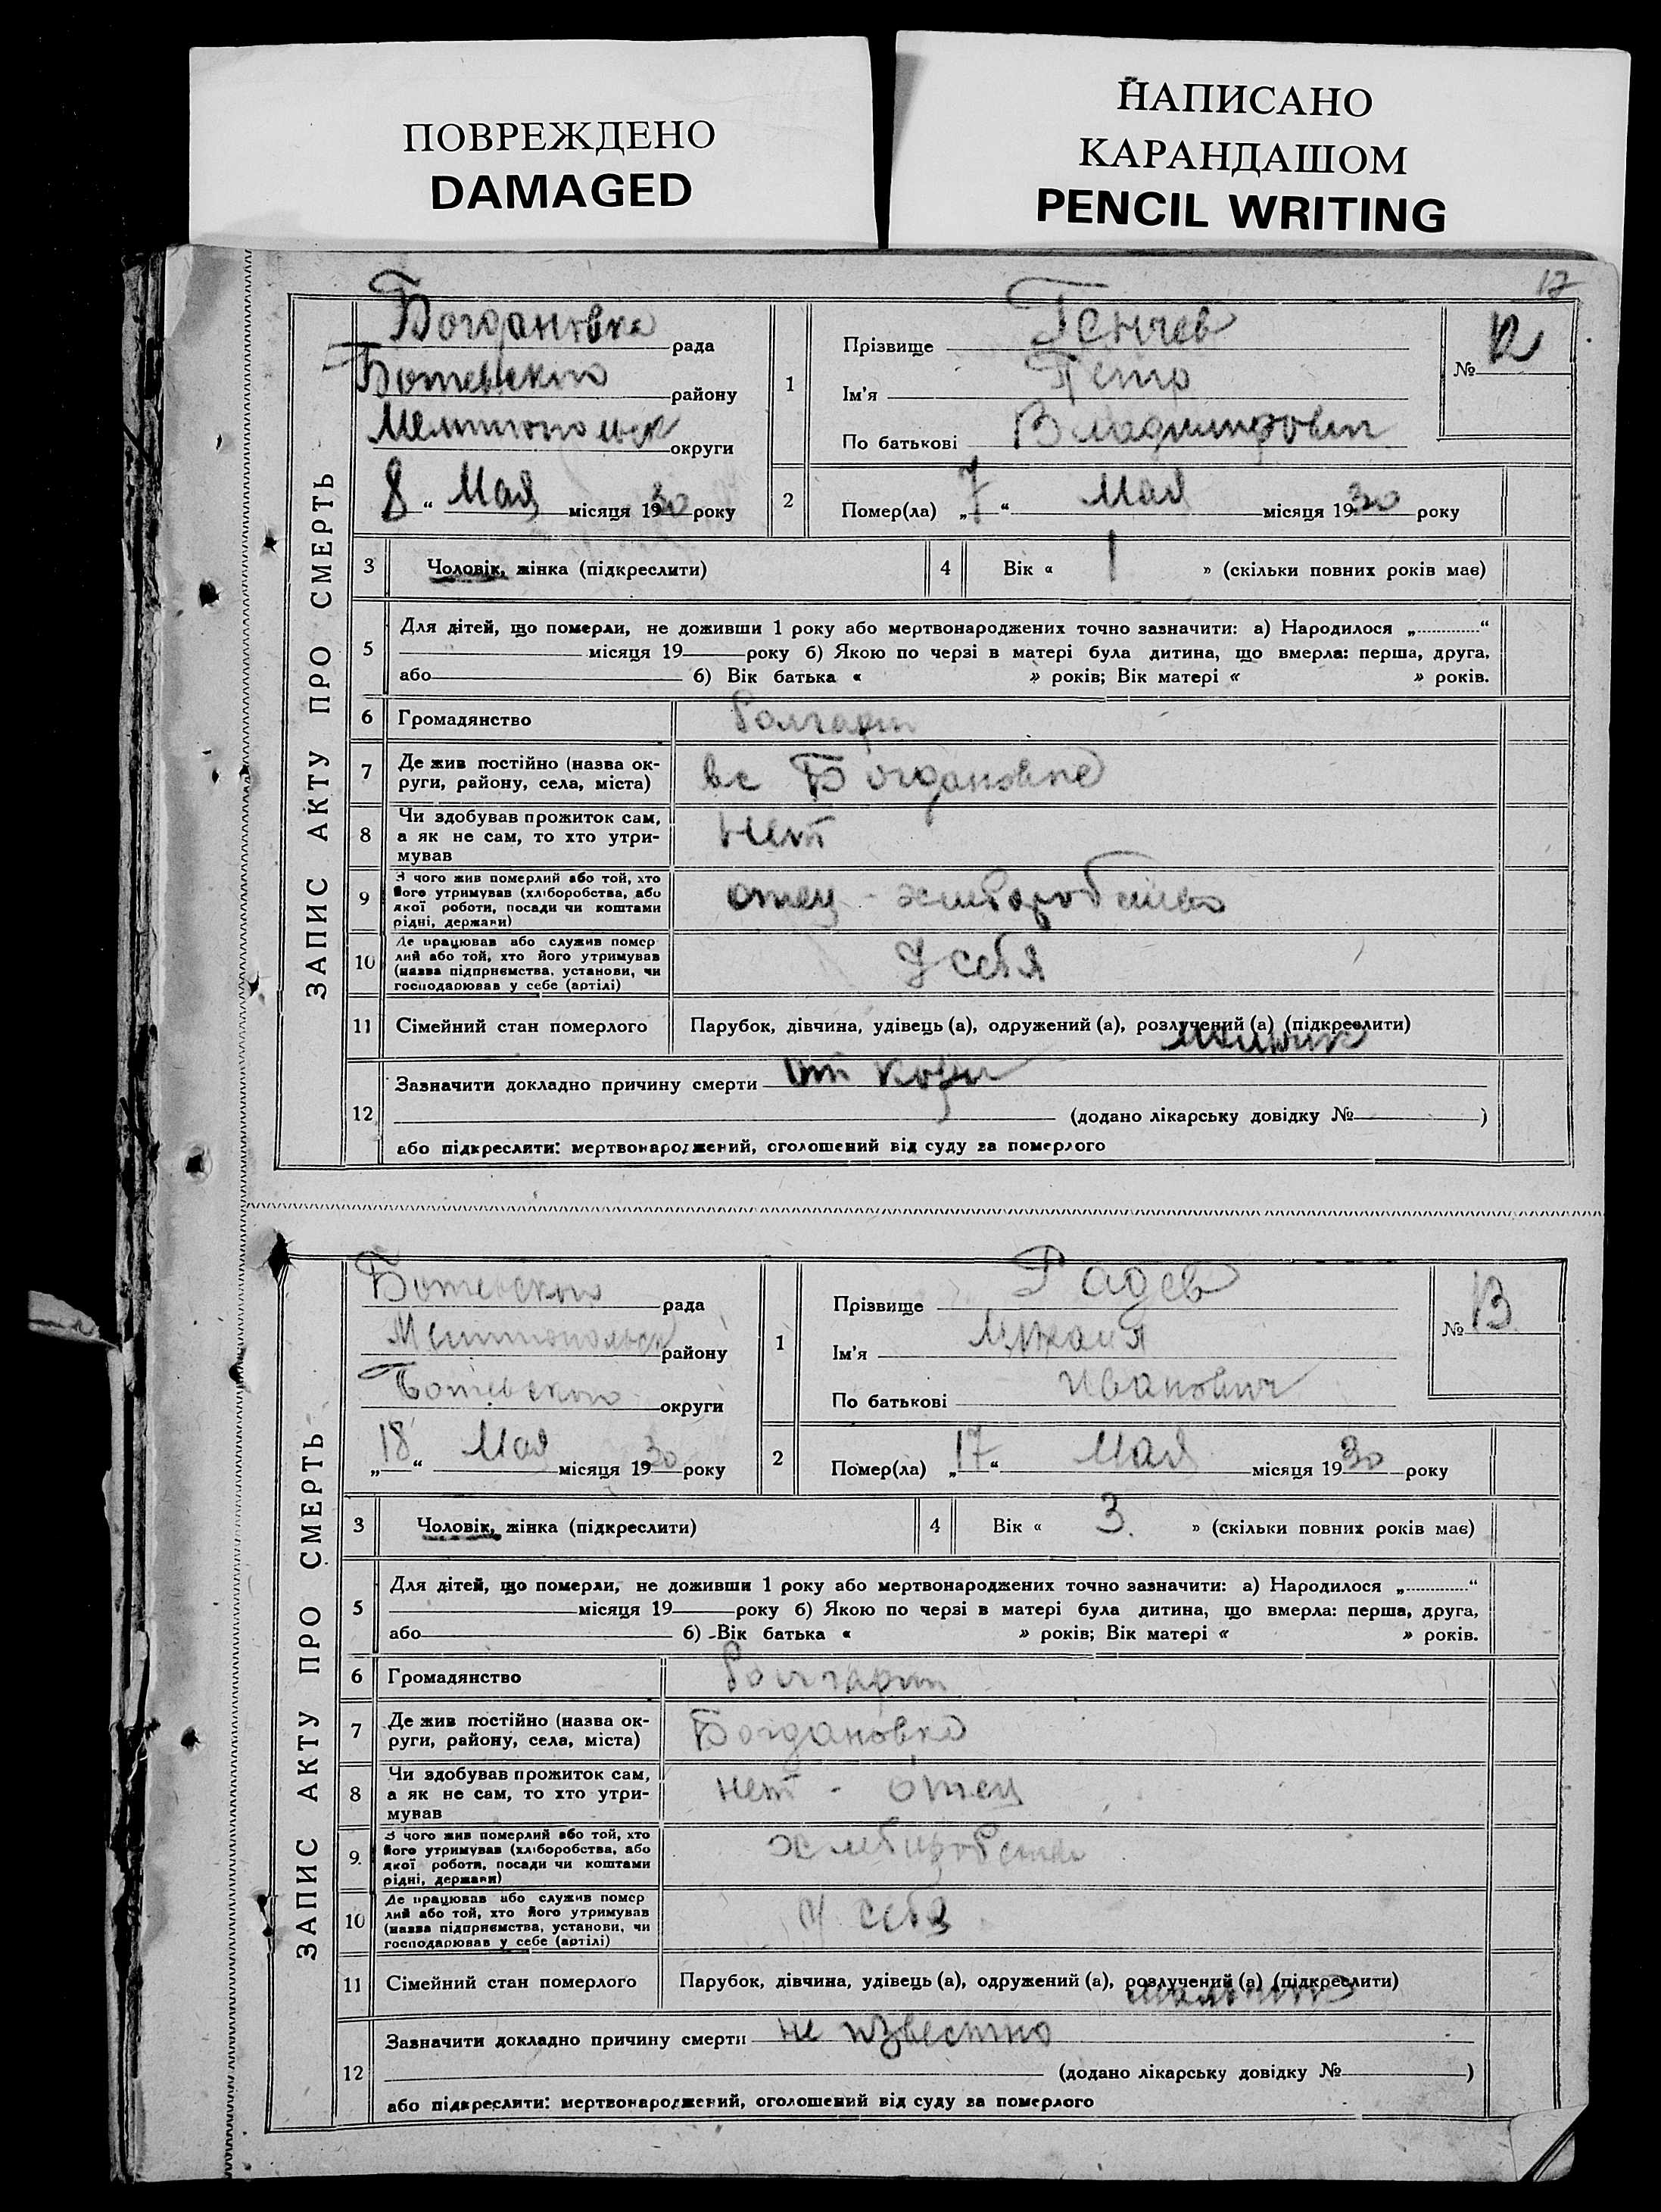 ПОВРЕЖДЕНО
DAMAGED
НАПИСАНО
КАРАНДАШОМ
PENCIL WRITING
17
ЗАПИС АКТУ ПРО СМЕРТЬ
Богдановка рада
Ботевского району
округи
8 " Мая місяця 1930 року
1
Прізвище Генчев
Ім'я Петр
По батькові Владимирович
№ 12
2
Помер(ла) „7“ Мая місяця 1930 року
3 Чоловік, жінка (підкреслити)
4 Вік « 1 » (скільки повних років має)
5
Для дітей, що померли, не доживши 1 року або мертвонароджених точно зазначити: а) Народилося „............“
місяця 19 року б) Якою по черзі в матері була дитина, що вмерла: перша, друга,
або б) Вік батька « » років; Вік матері « » років.
6 Громадянство Болгарин
7 Де жив постійно (назва ок-
руги, району, села, міста) вс Богдановке
8 Чи здобував прожиток сам,
а як не сам, то хто утри-
мував
нет
9 З чого жив померлий або той, хто
його утримував (хліборобства, або
якої роботи, посади чи коштами
рідні, держави)
отец -
10 Де працював або служив помер
лий або той, хто його утримував
(назва підприємства, установи, чи
господарював у себе (артілі)
У себя
11 Сімейний стан померлого Парубок, дівчина, удівець (а), одружений (а), розлучений (а) (підкреслити)
мальчик
12
Зазначити докладно причину смерти от кори
(додано лікарську довідку № )
або підкреслити: мертвонароджений, оголошений від суду за померлого
ЗАПИС АКТУ ПРО СМЕРТЬ
Ботевского рада
району
Ботевского округи
„18“ Мая місяця 1930 року
1
Прізвище Радев
Ім'я Михаил
По батькові Иванович
№ 13
2
Помер(ла) „17“ Мая місяця 1930 року
3 Чоловік, жінка (підкреслити)
4 Вік « 3. » (скільки повних років має)
5
Для дітей, що померли, не доживши 1 року або мертвонароджених точно зазначити: а) Народилося „............“
місяця 19 року б) Якою по черзі в матері була дитина, що вмерла: перша, друга,
або б) Вік батька « » років; Вік матері « » років.
6 Громадянство Болгарин
7 Де жив постійно (назва ок-
руги, району, села, міста) Богдановка
8 Чи здобував прожиток сам,
а як не сам, то хто утри-
мував
нет - отец
9. З чого жив померлий або той, хто
його утримував (хліборобства, або
якої роботи, посади чи коштами
рідні, держави)
10 Де працював або служив помер
лий або той, хто його утримував
(назва підприємства, установи, чи
господарював у себе (артілі)
У себя
11 Сімейний стан померлого Парубок, дівчина, удівець (а), одружений (а), розлучений (а) (підкреслити)
мальчик
12
Зазначити докладно причину смерти не известно
(додано лікарську довідку № )
або підкреслити: мертвонароджений, оголошений від суду за померлого